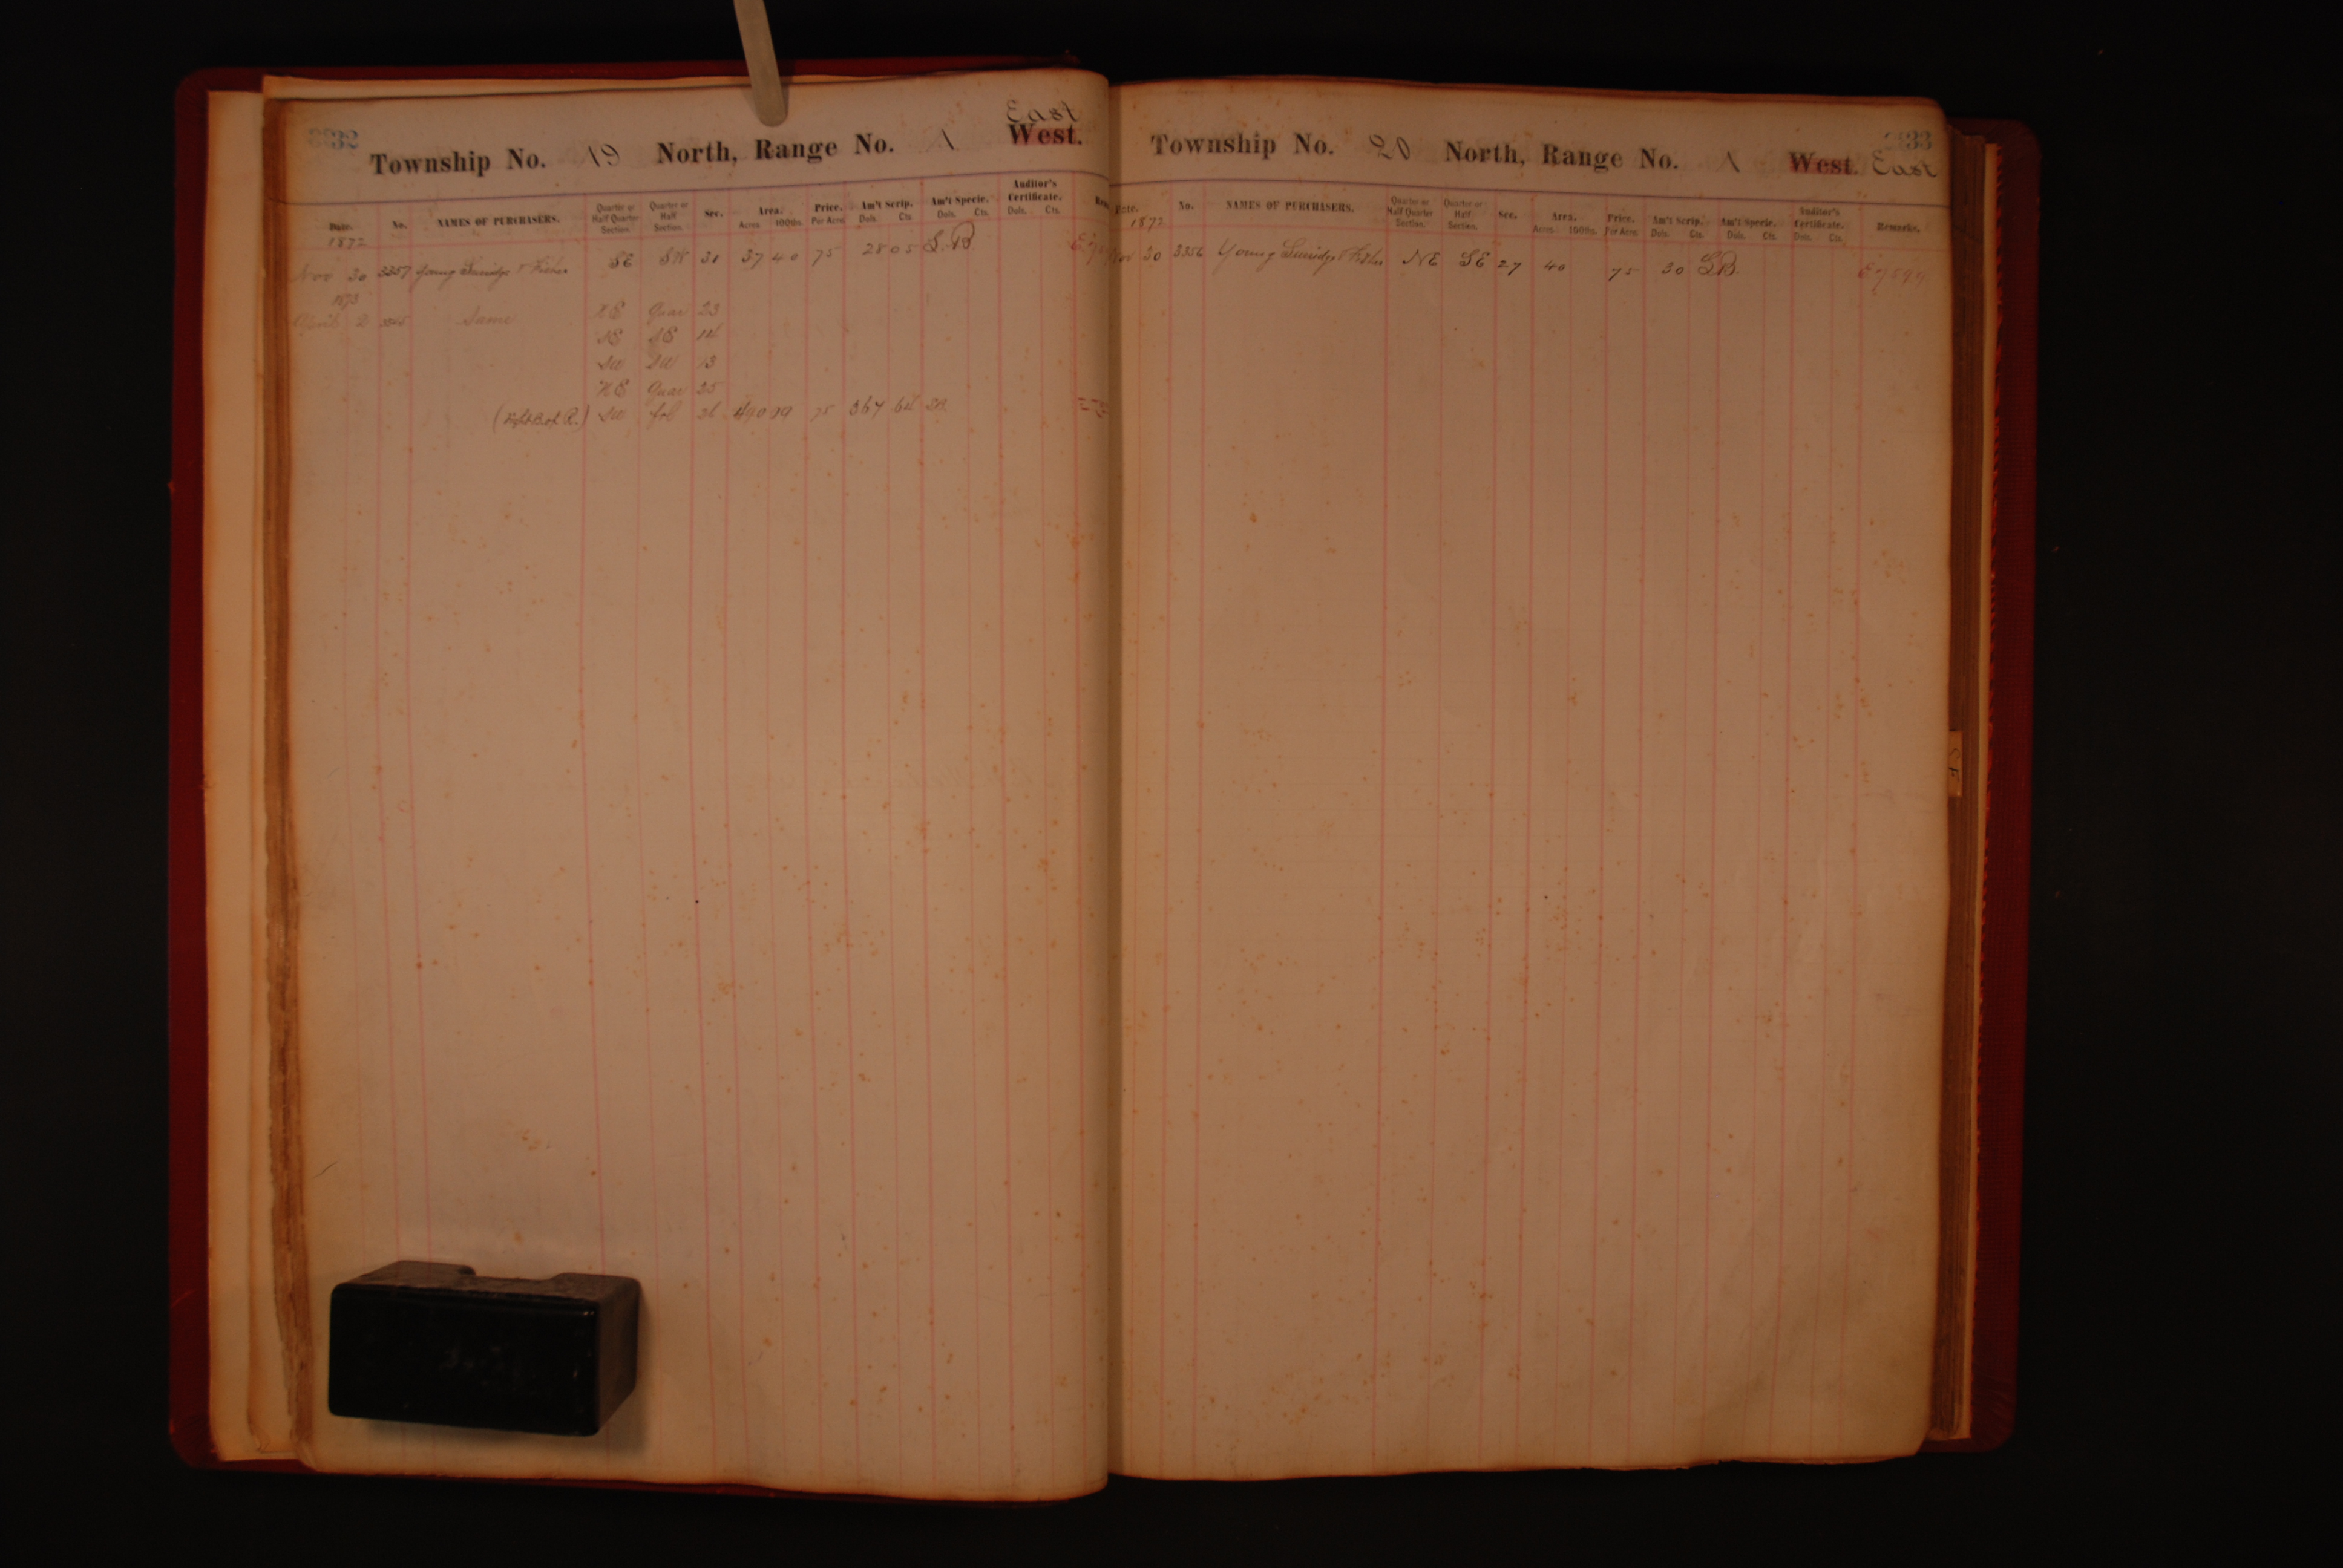 32
East
Township No. 19 North, Range No. 1 West.
Date. No. NAMES OF PURCHASERS. Quarter or Half Quarter Section. Quarter or Half Section. Sec. Area. Acres 100ths. Price. Per Acre Am't Scrip. Dols. Cts. Am't Specie. Dols. Cts. Auditor's Certificate. Dols. Cts.
1872
Nov 30 3357 Young & Fisher SE SW 31 37 40 75 28 05 S.B.
1873
April 2 Same NE Quar 23
SE 14
SW SW 13
NE Quar 25
SW frl 26 75 367 64 SB
33
Township No. 20 North, Range No. 1 West. East
Date. No. NAMES OF PURCHASERS. Quarter or Half Quarter Section. Quarter or Half Section. Sec. Area. Acres 100ths. Price. Per Acre Am't Scrip. Dols. Cts. Am't Specie. Dols. Cts. Auditor's Certificate. Dols. Cts. Remarks.
1872
Nov 30 3356 Young & Fisher NE SE 27 40 75 30 SB